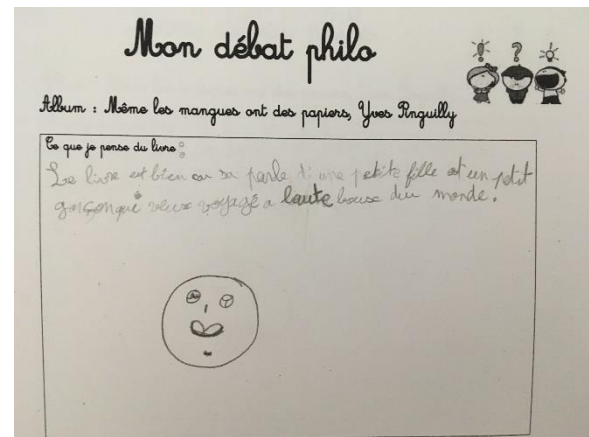 Mon débat philo
Album : Même les mangues ont des papiers, Yves Pinguilly
Ce que je pense du livre :
Le livre est bien car sa parle di une petite fille et un petit
garsonqui veux voyagé a laute bouse du monde.